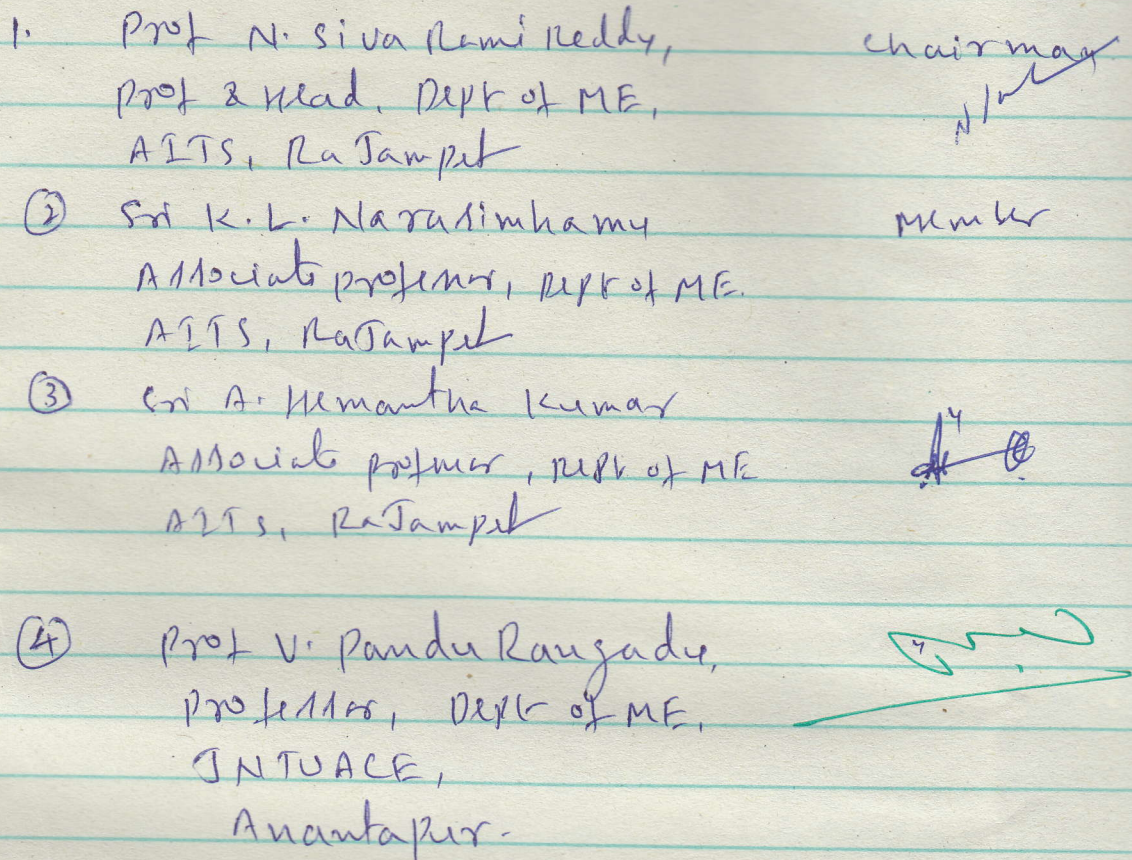 1. Prof N. Siva Rami Reddy, Chairman
Prof & Head, Dept of ME,
AITS, RaJampet
② Sri K.L. Narasimhamu Member
Associate professor, Dept of ME.
AITS, RaJampet
③ Sri A. Hemantha Kumar
Associate professor, Dept of ME
AITS, RaJampet
④ Prof V. Pandu Rangadu,
Professor, Dept of ME,
JNTUACE,
Anantapur.